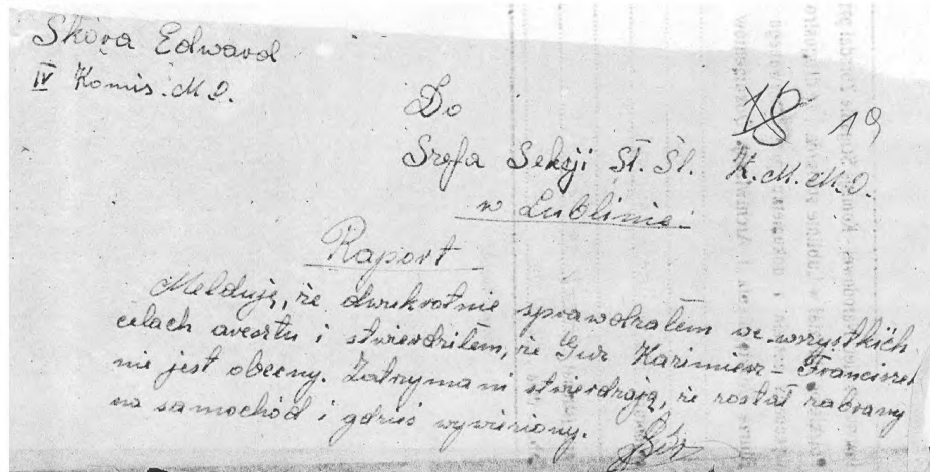 Skóra Edward
IV Komis. M.O.
18 19
Do
Szefa Sekcji Sł. Śl. K.M.M.O.
w Lublinie
Raport
Melduję, że dwukrotnie sprawdzałem we wszystkich
celach aresztu i stwierdziłem, że Gur Kazimierz - Franciszek
nie jest obecny. Zatrzymani stwierdzają, że został zabrany
na samochód i gdzieś wywieziony.